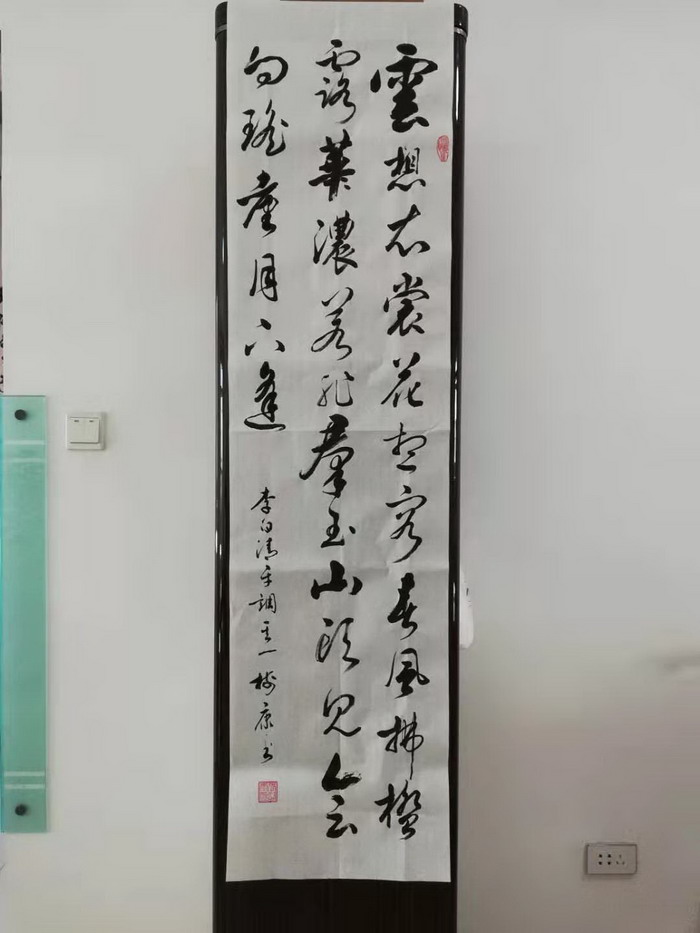 雲想衣裳花想容春風拂檻
露華濃若非羣玉山頭見会
向瑤臺月下逢
李白清平調其一 樹康书